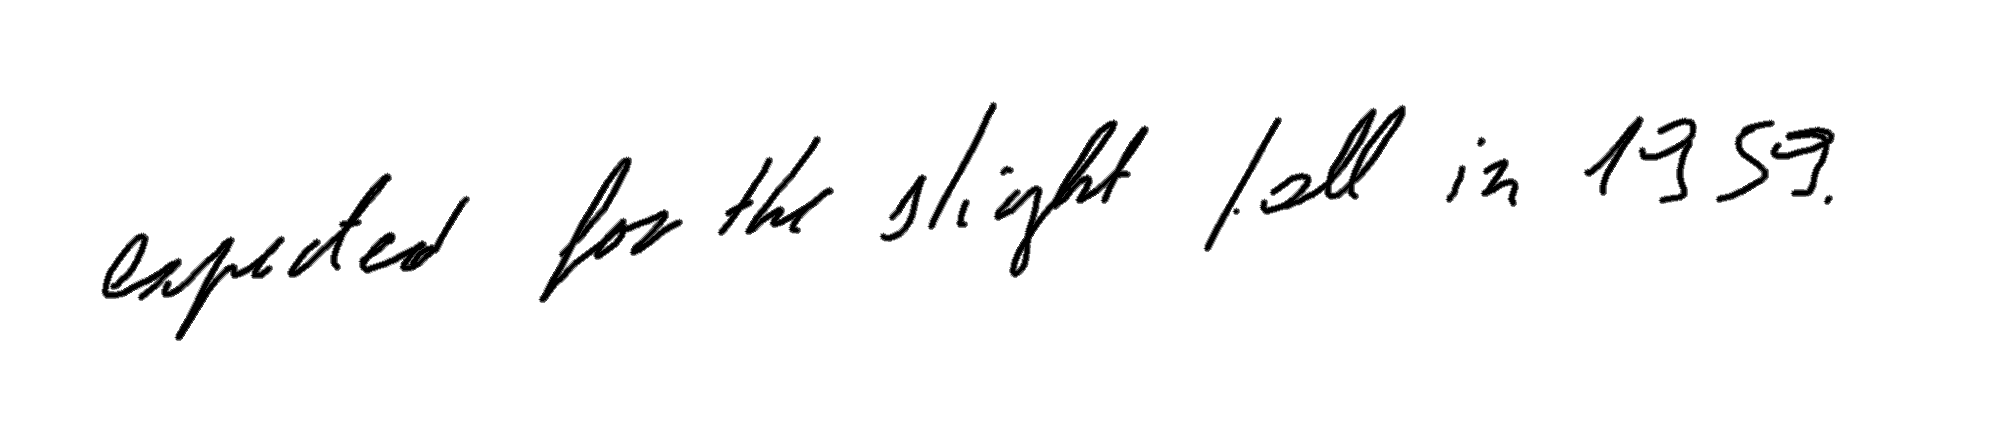 expected for the slight fall in 1959.